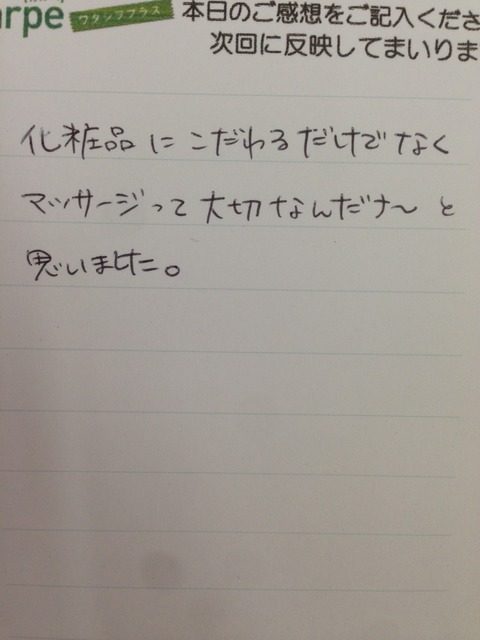 arpe ワタシプラス 本日のご感想をご記入くださ
次回に反映してまいりま
化粧品にこだわるだけでなく
マッサージって大切なんだナ〜と
思いました。